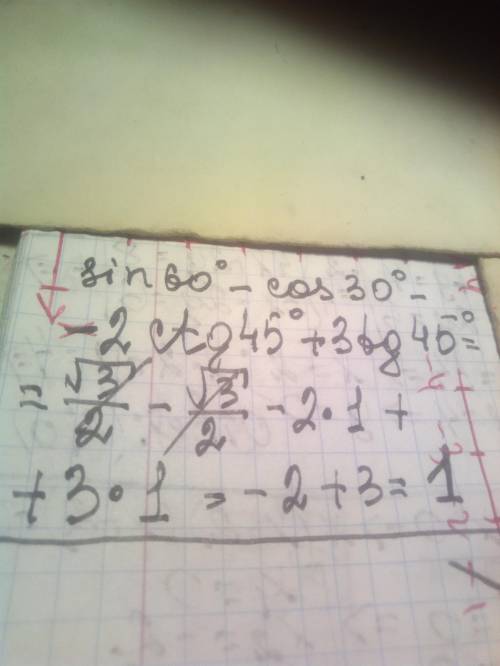 sin 60° - cos 30° -
- 2 ctg 45° + 3 tg 45° =
= √3/2 - √3/2 - 2·1 +
+ 3·1 = -2+3 = 1